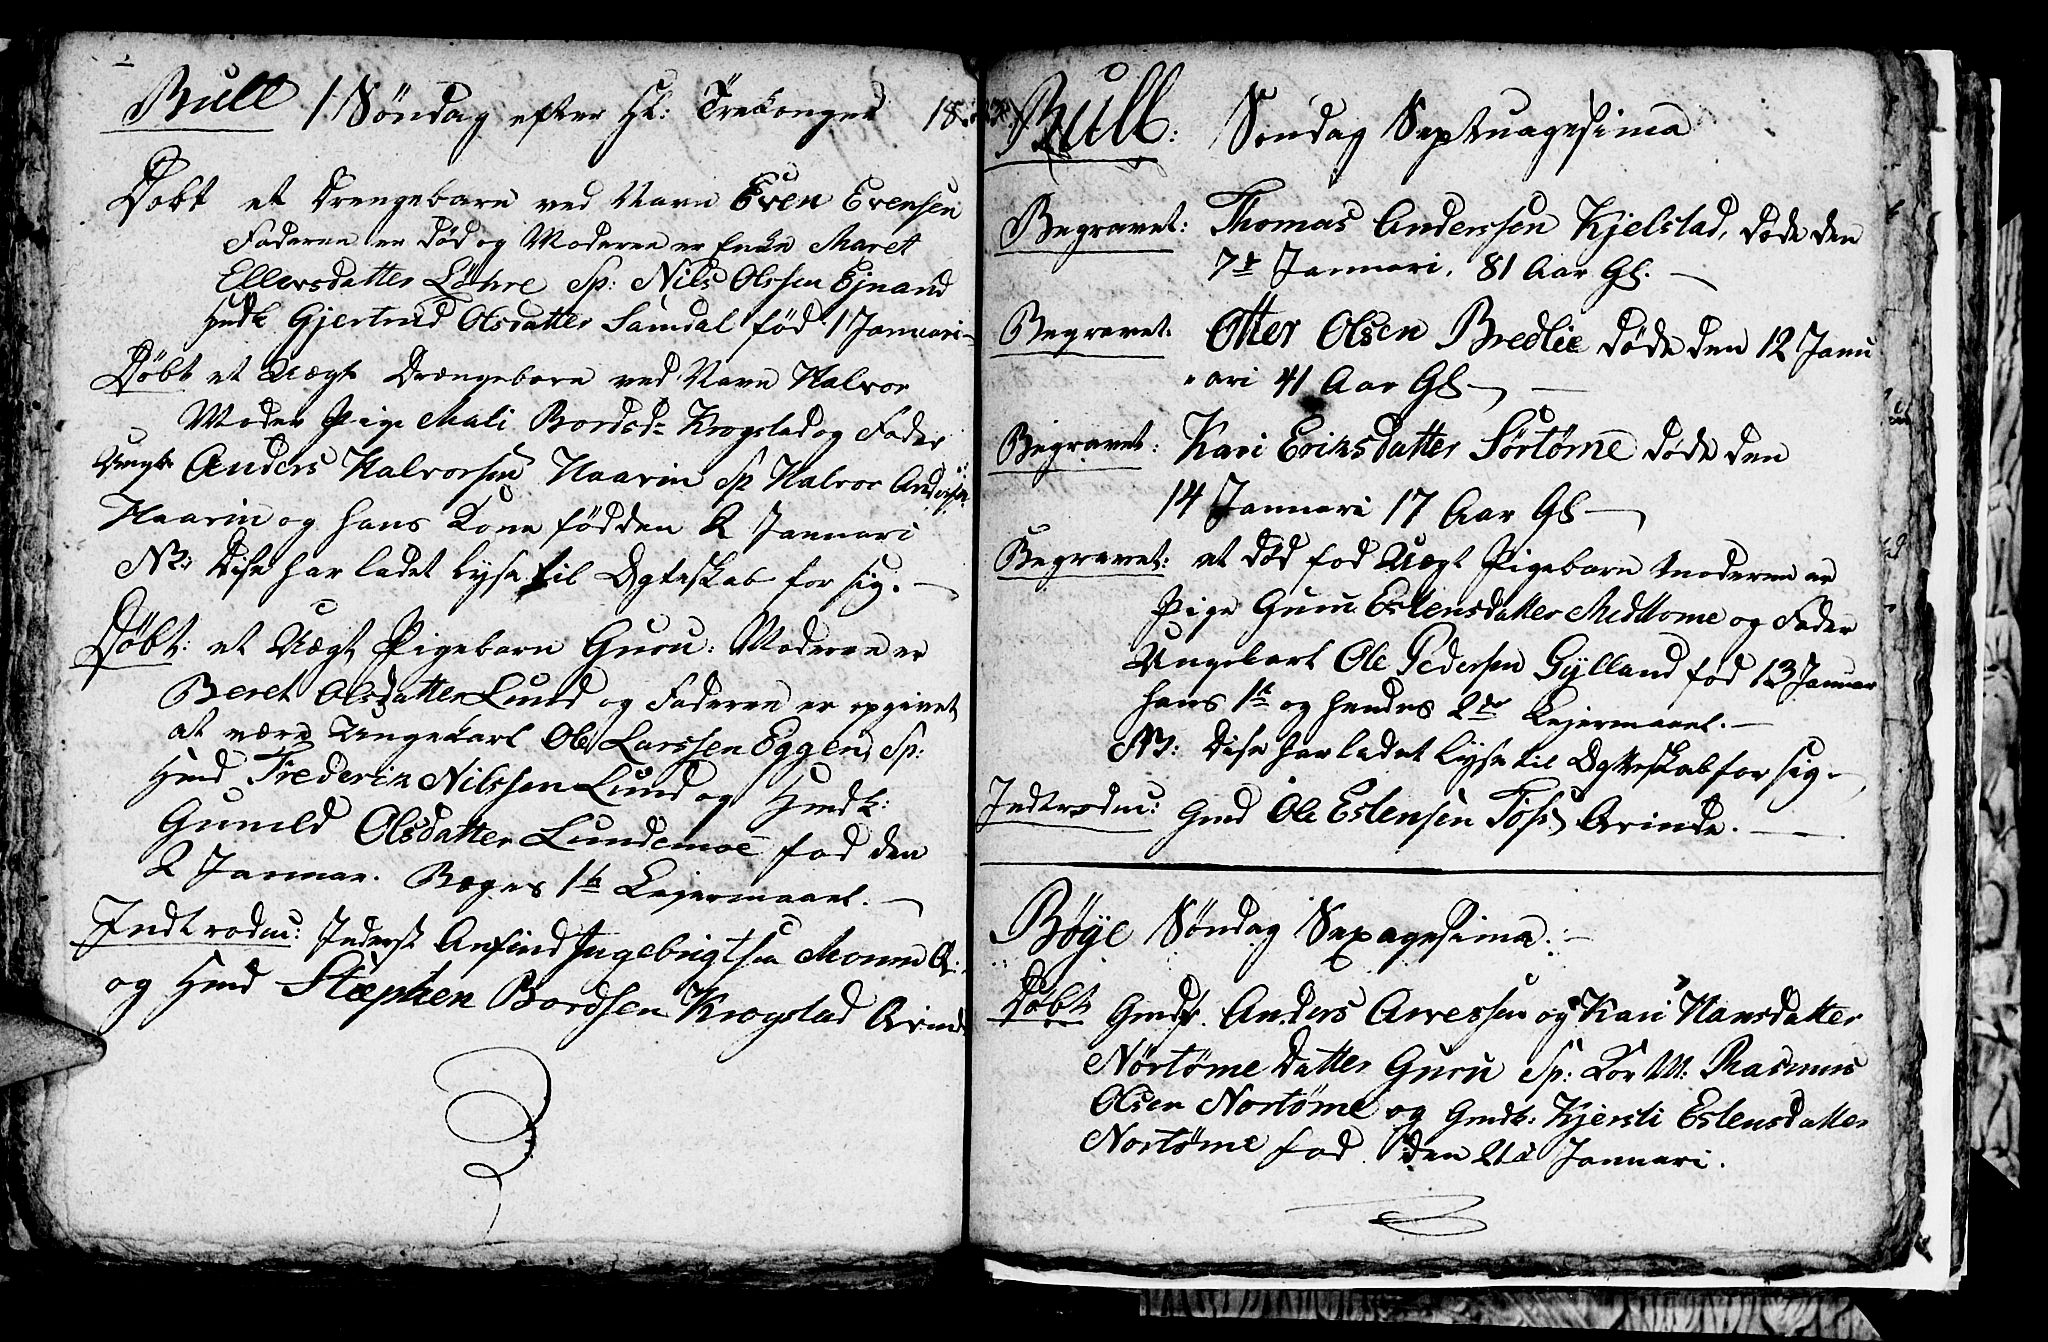 Bull 1 Søndag efter Hl: Trekonger 18
Døbt et Drengebarn ved Navn Even Evensen
Faderen er død og Moderen er Enke Maret
Ellevsdatter Løhre Sp: Nils Olssen Ejnand
Hmdk Gjertrud Olsdatter Samdal fød 1 Januari
Døbt et Uægt Drængebarn ved Navn Halvor
Moder Pige Mali Bordsd= Krogstad og Fader
Ungk Anders Halvorsen Haarin Sp Halvor Andersen
Haarin og hans Kone fød den 2 Januari
NB: Disse har ladet lyse til Ægteskab for sig.
Døbt: et Uægt Pigebarn Guru: Moderen er
Beret Olsdatter Lund og Faderen er opgivet
at være Ungekarl Ole Larssen Eggen, Sp:
Hmd Frederik Nilssen Lund og Hmdk:
Gunild Olsdatter Lundemoe fød den
2 Januar. Beges 1te Lejermaael.
Indtroduc: Inderst Anfind Ingebrigtsen Monne Q:
og Hmd Stæphen Bordsen Krogstad Qvinde
Bull: Søndag Septuagesima
Begravet: Thomas Anderssen Kjelstad, døde den
7de Januari, 81 Aar Gl.
Begravet: Otter Olsen Bredlie døde den 12 Janu
"ari 41 Aar Gl
Begravet: Kari Eriksdatter Sørtømme døde den
14 Januari 17 Aar Gl
Begravet: et død fød Uægt Pigebarn Moderen er
Pige Guru Estensdatter Midttømme og Fader
Ungekarl Ole Pedersen Gylland fød 13 Januar
hans 1te og hendes 2det Lejermaael.
NB: Disse har ladet lyse til Ægteskab for sig
Indtroduc: Gmd Ole Estensen Qvinde.
Bøye Søndag Sexagesima.
Døbt Gmdf. Anders Arvessen og Kari Hansdatter
Nørtømme Datter Guru Sp: Kor M: Rasmus
Olsen Nortømme og Gmdk: Kjersti Estensdatter
Nortømme fød den 21de Januari.